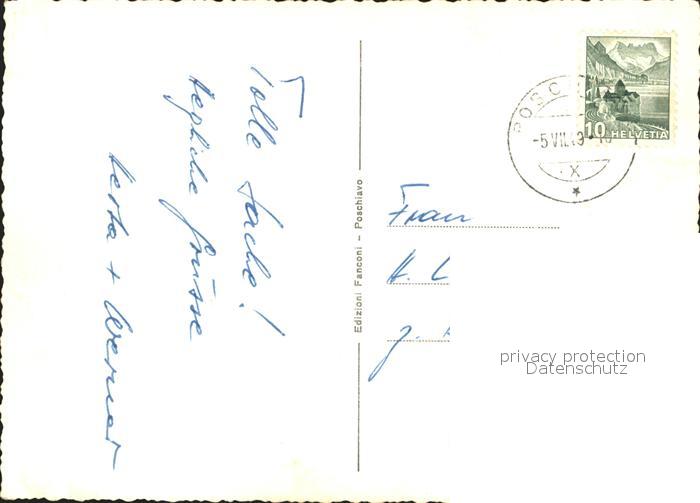 Tolle Sache!
herzliche Grüsse
Herta + Werner
Edizioni Fanconi – Poschiavo
Frau
H. L
J.
POSC
-5 VII.49
X
10 HELVETIA
privacy protection
Datenschutz